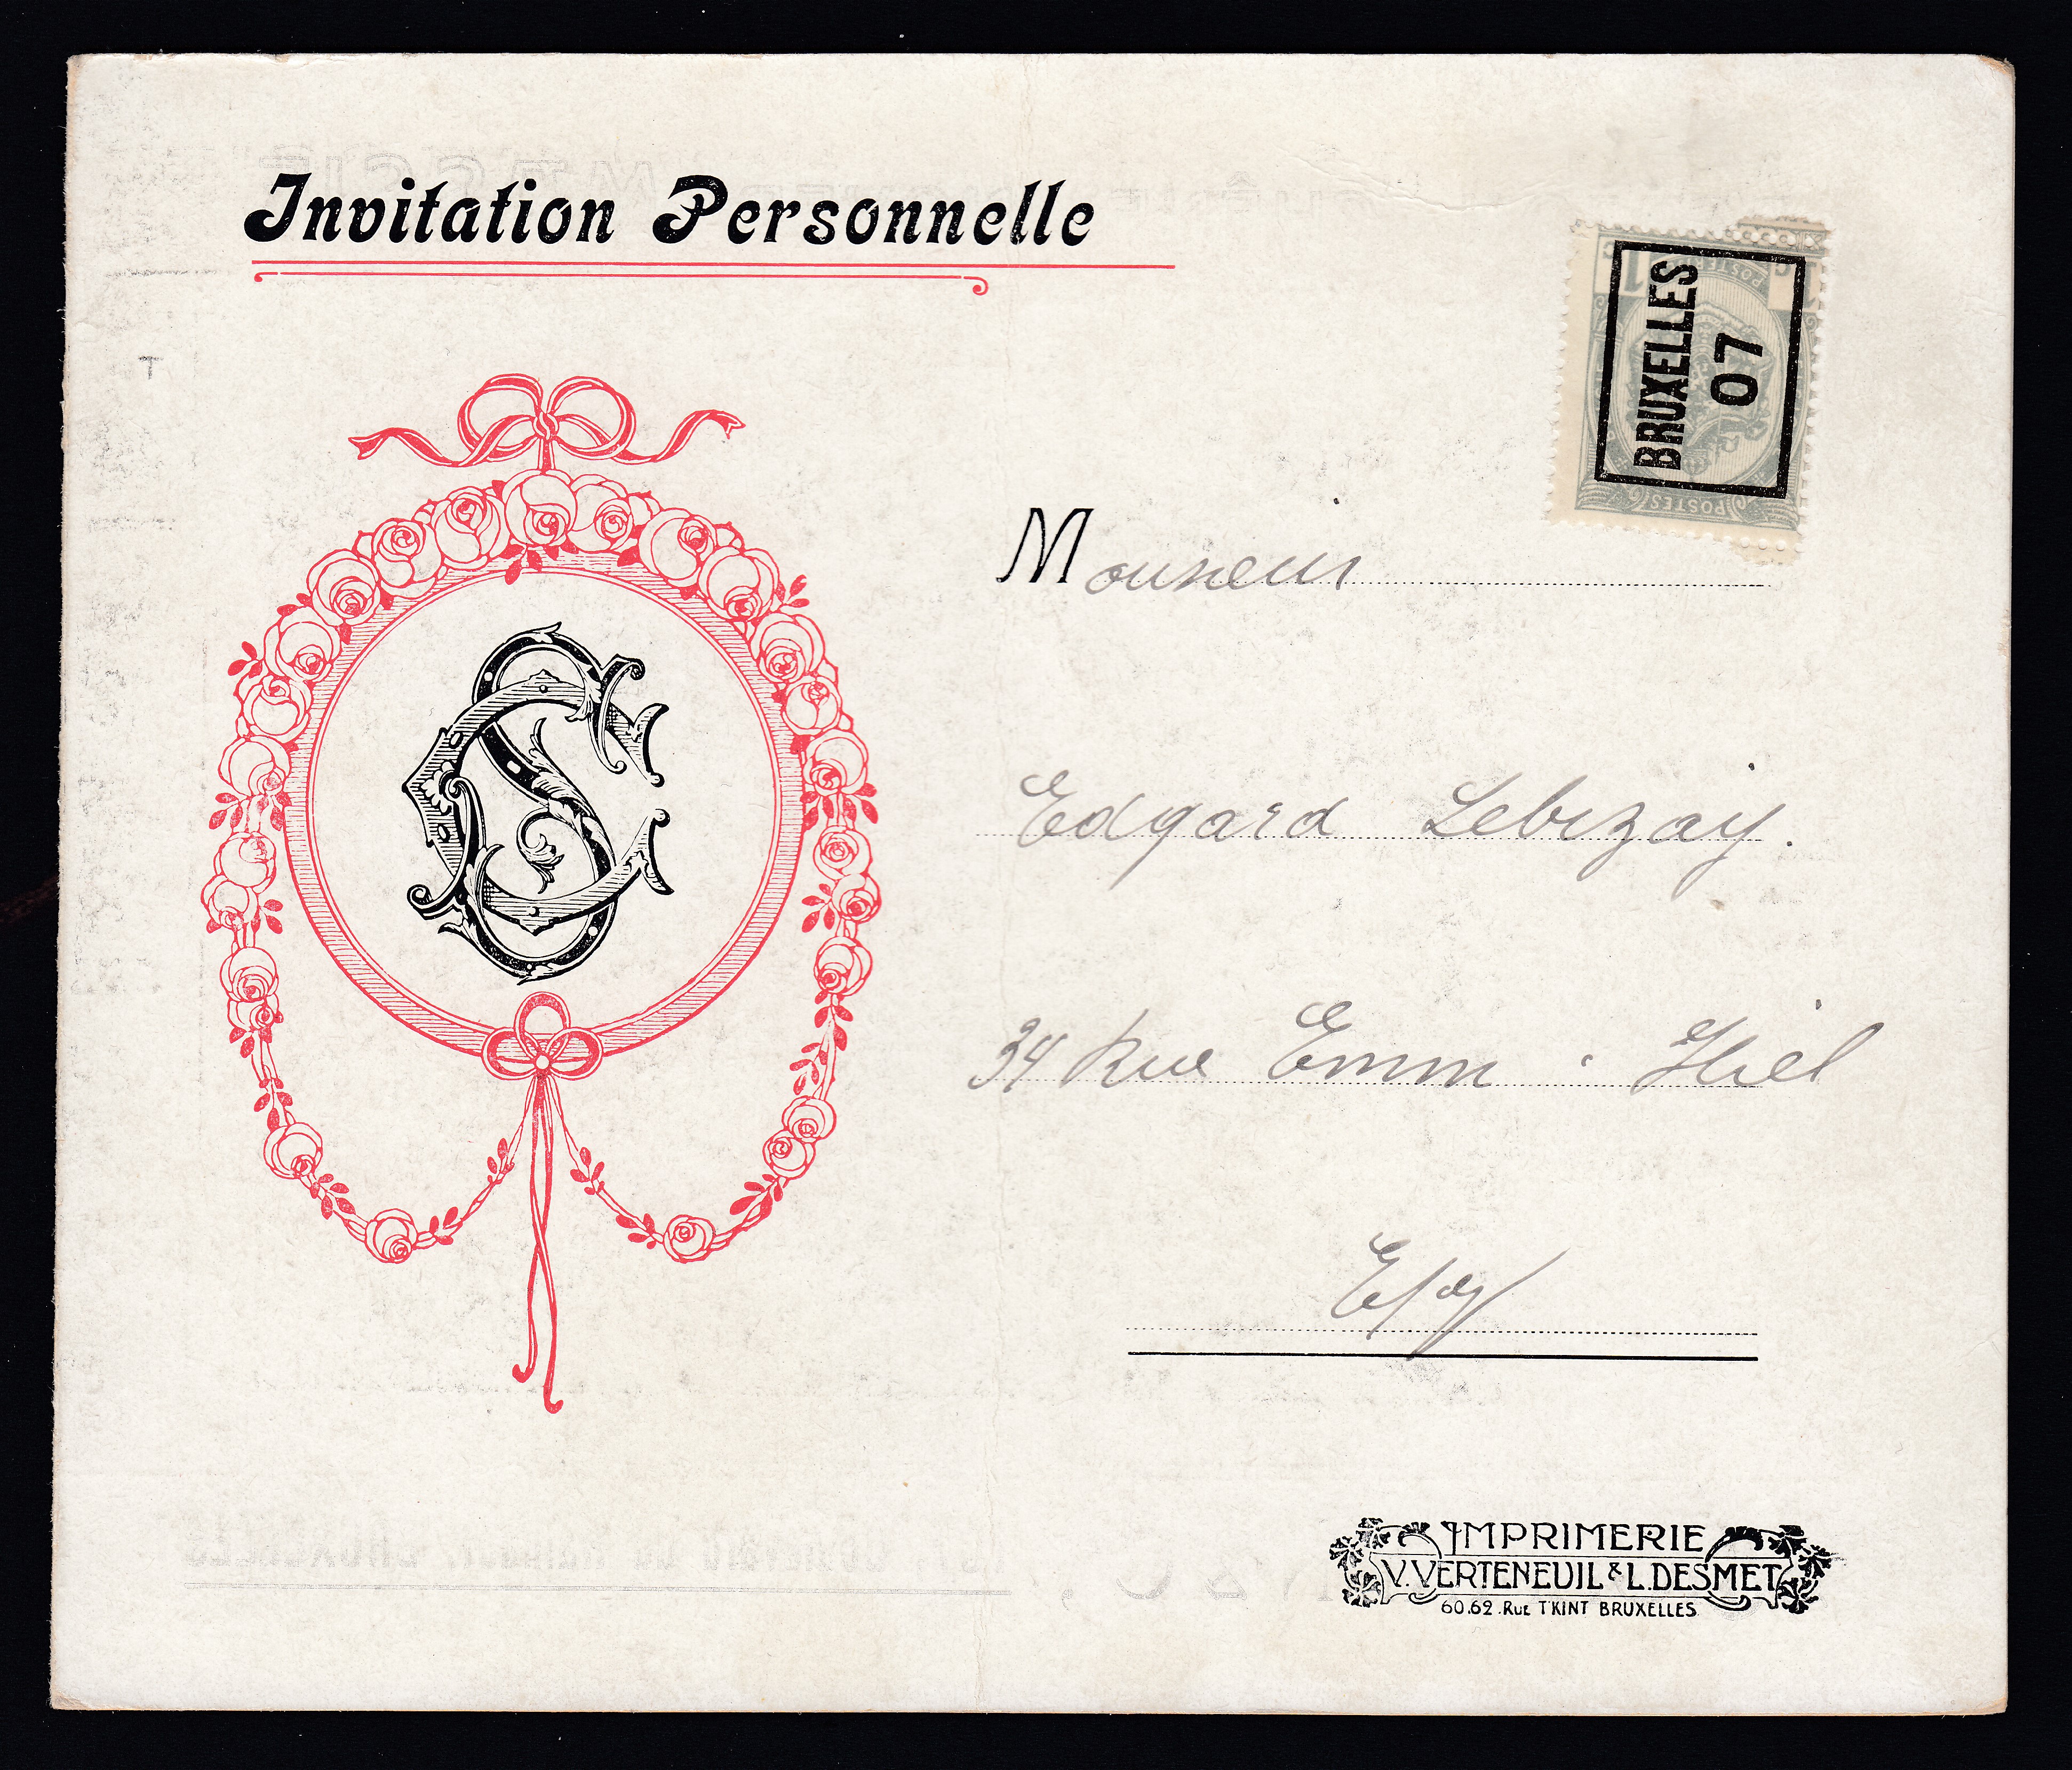 Invitation Personnelle
BRUXELLES
07
1c
POSTES
POSTES
T
SC
Monsieur
Edgard Lebrzay.
34 Rue Emm. Hiel
E/v
IMPRIMERIE
V. VERTENEUIL & L. DESMET
60.62. RUE T'KINT BRUXELLES